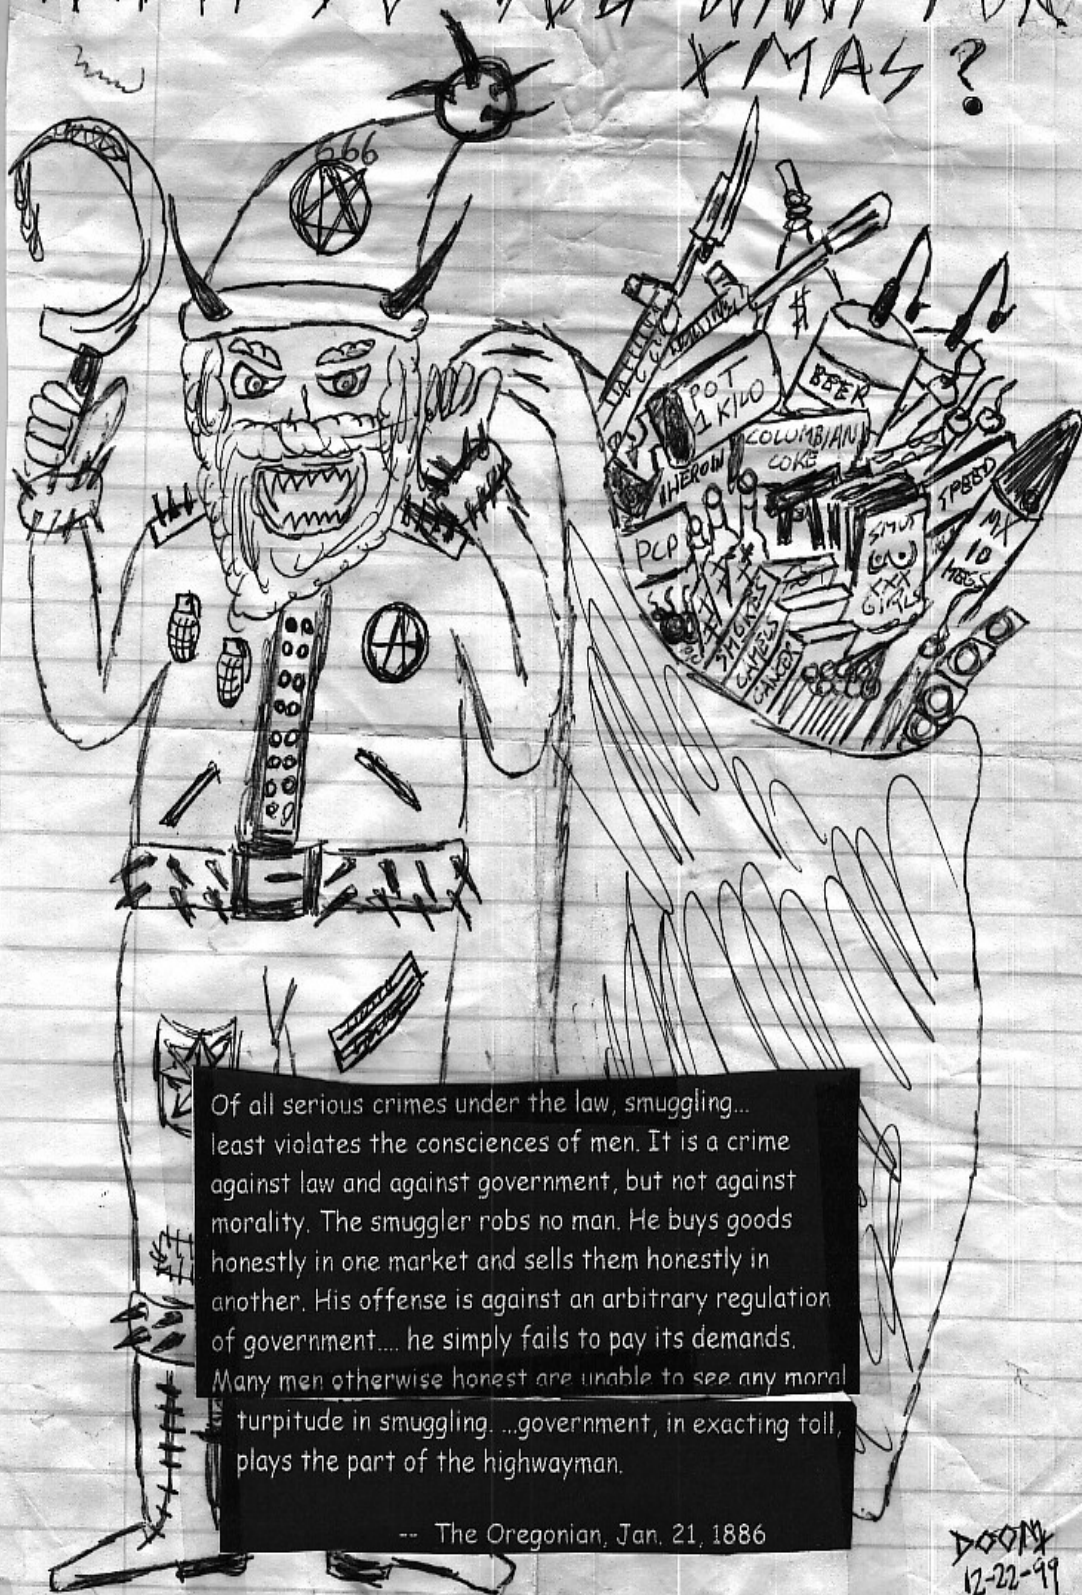 XMAS?
666
$
POT
1 KILO
BEER
COLUMBIAN
COKE
HEROIN
SPEED
PCP
MX
10
MEGS
SMUT
XXX
GIRLS
SMOKES
CAMELS
CANCER
Of all serious crimes under the law, smuggling...
least violates the consciences of men. It is a crime
against law and against government, but not against
morality. The smuggler robs no man. He buys goods
honestly in one market and sells them honestly in
another. His offense is against an arbitrary regulation
of government.... he simply fails to pay its demands.
Many men otherwise honest are unable to see any moral
turpitude in smuggling. ...government, in exacting toll,
plays the part of the highwayman.
-- The Oregonian, Jan. 21, 1886
DOOM
12-22-99